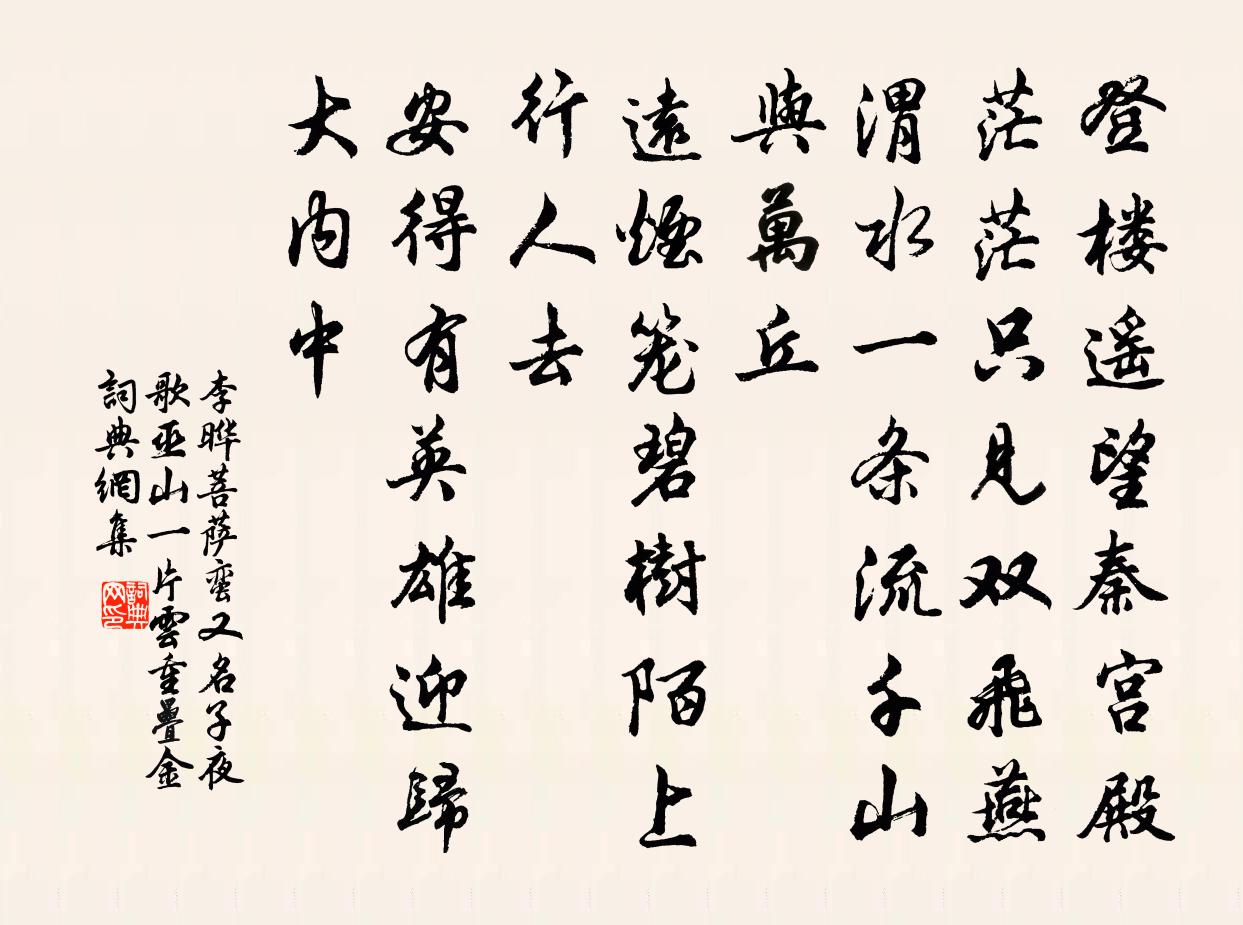 登楼遥望秦宫殿
茫茫只見双飛燕
渭水一条流千山
與萬丘
遠煙笼碧樹陌上
行人去
安得有英雄迎歸
大内中
李晔菩萨蛮又名子夜
歌巫山一片雲重疊金
詞典網集
詞典网印